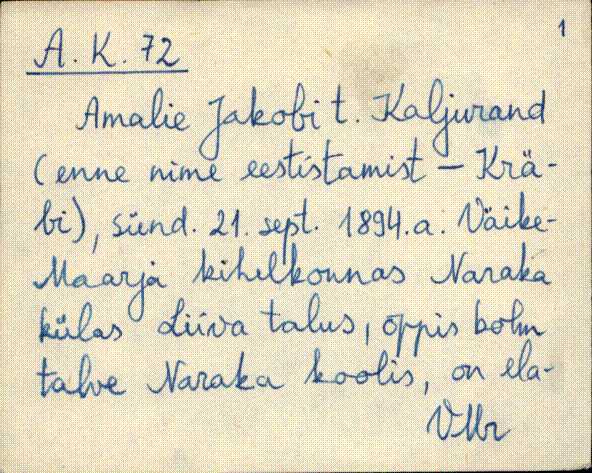 1
A. K. 72
Amalie Jakobi t. Kaljurand
(enne nime eestistamist – Krä-
bi), sünd. 21. sept. 1894.a. Väike-
Maarja kihelkonnas Naraka
külas Liiva talus, õppis kolm
talve Naraka koolis, on ela-
VMr